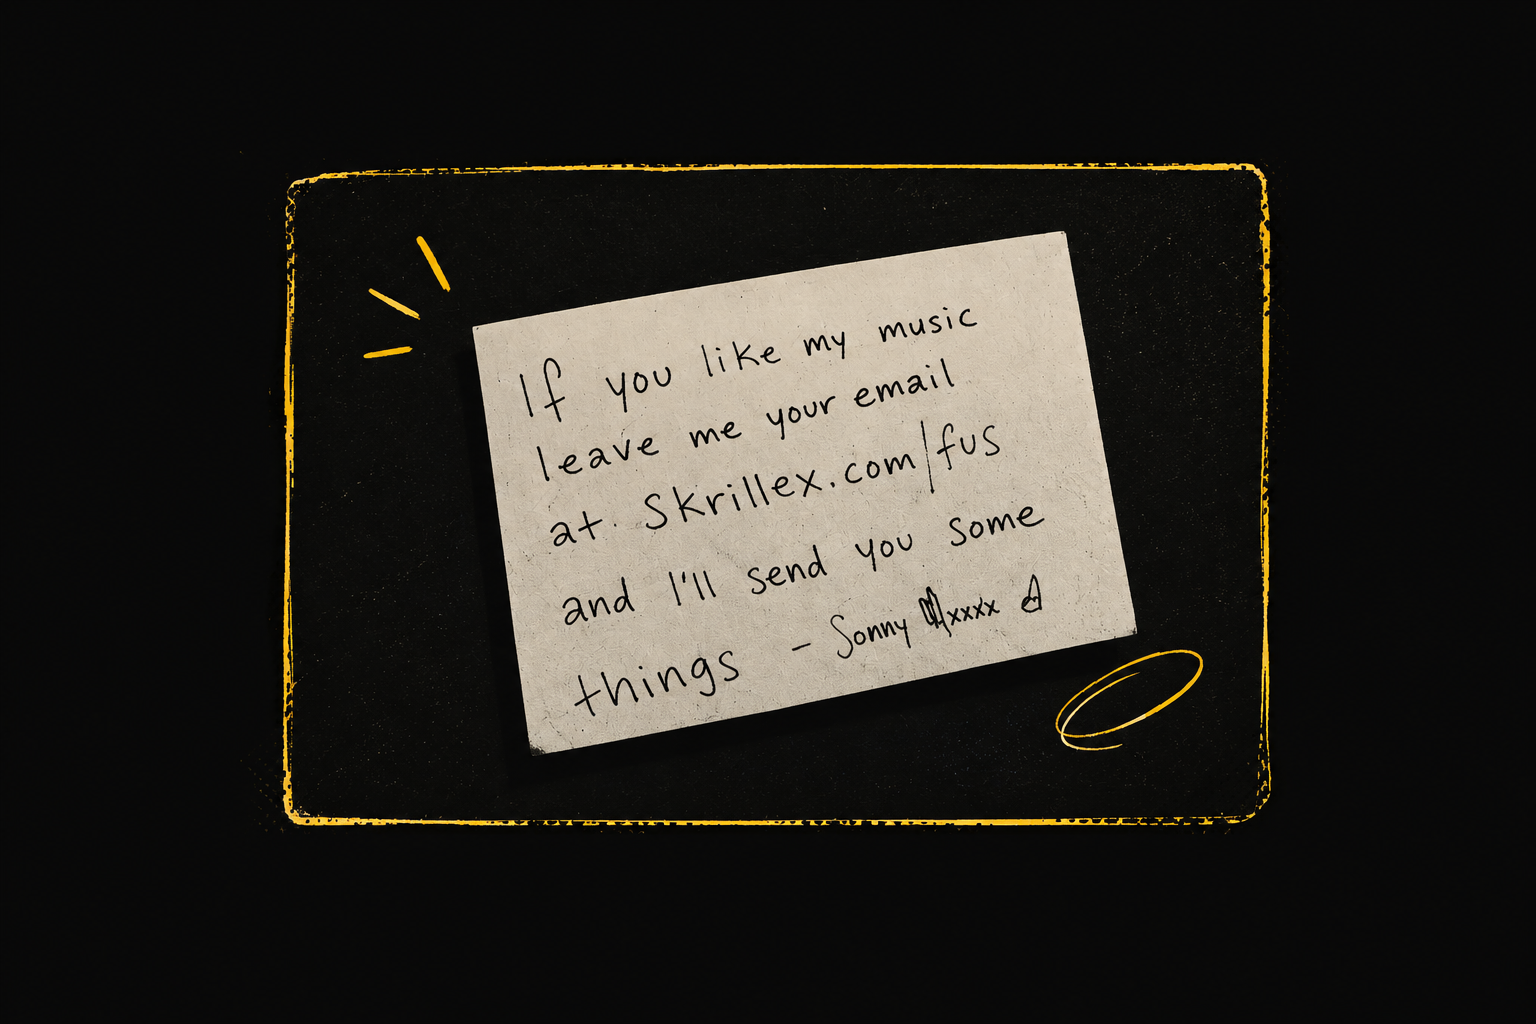 If you like my music
leave me your email
at. Skrillex.com/fus
and I'll send you some
things – Sonny xxxx